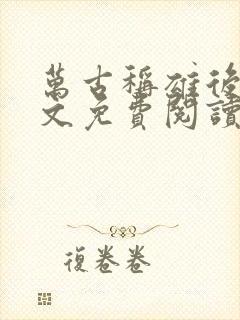 萬古稱雄後
文免費閱讀
復卷卷